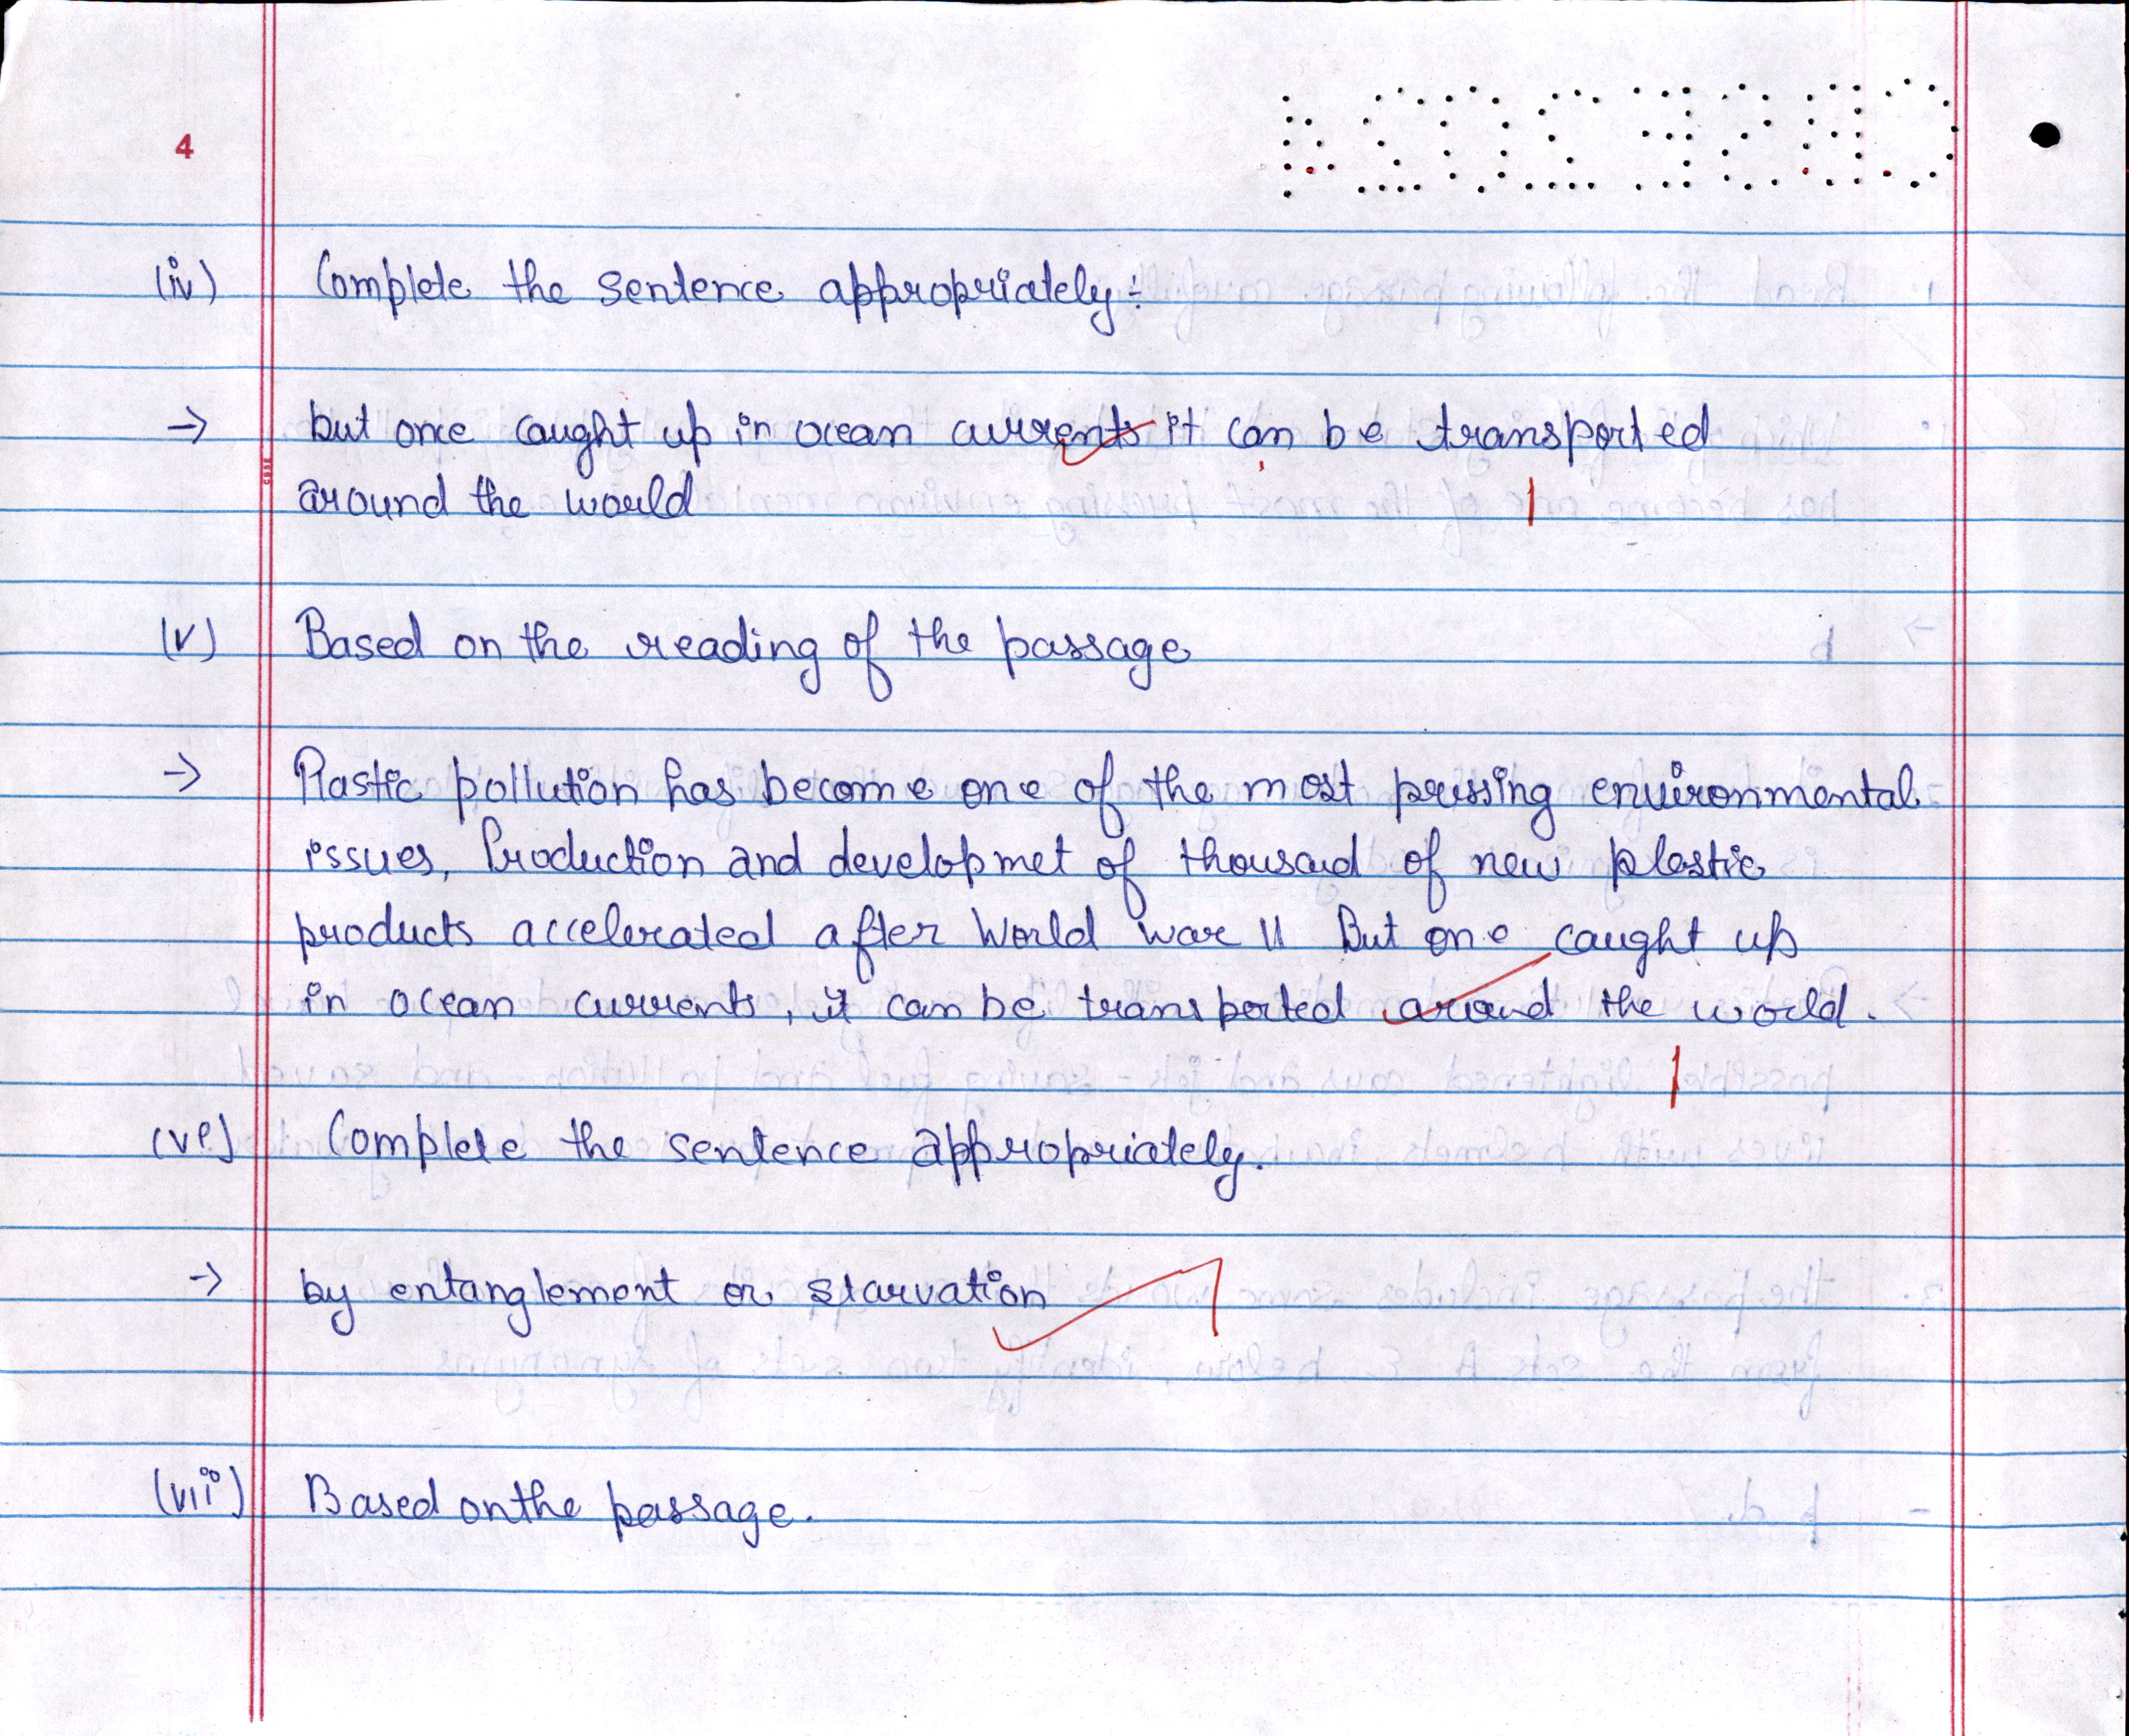 4
(iv) Complete the sentence appropriately :-
→ but once caught up in ocean currents it can be transported
around the world
1
(v) Based on the reading of the passage
→ Plastic pollution has become one of the most pressing environmental
issues, Production and developmet of thousad of new plastic
products accelerated after World war II But one caught up
in ocean currents, it can be transported around the world.
1
(vi) Complete the sentence appropriately.
→ by entanglement or starvation
1
(vii) Based on the passage.